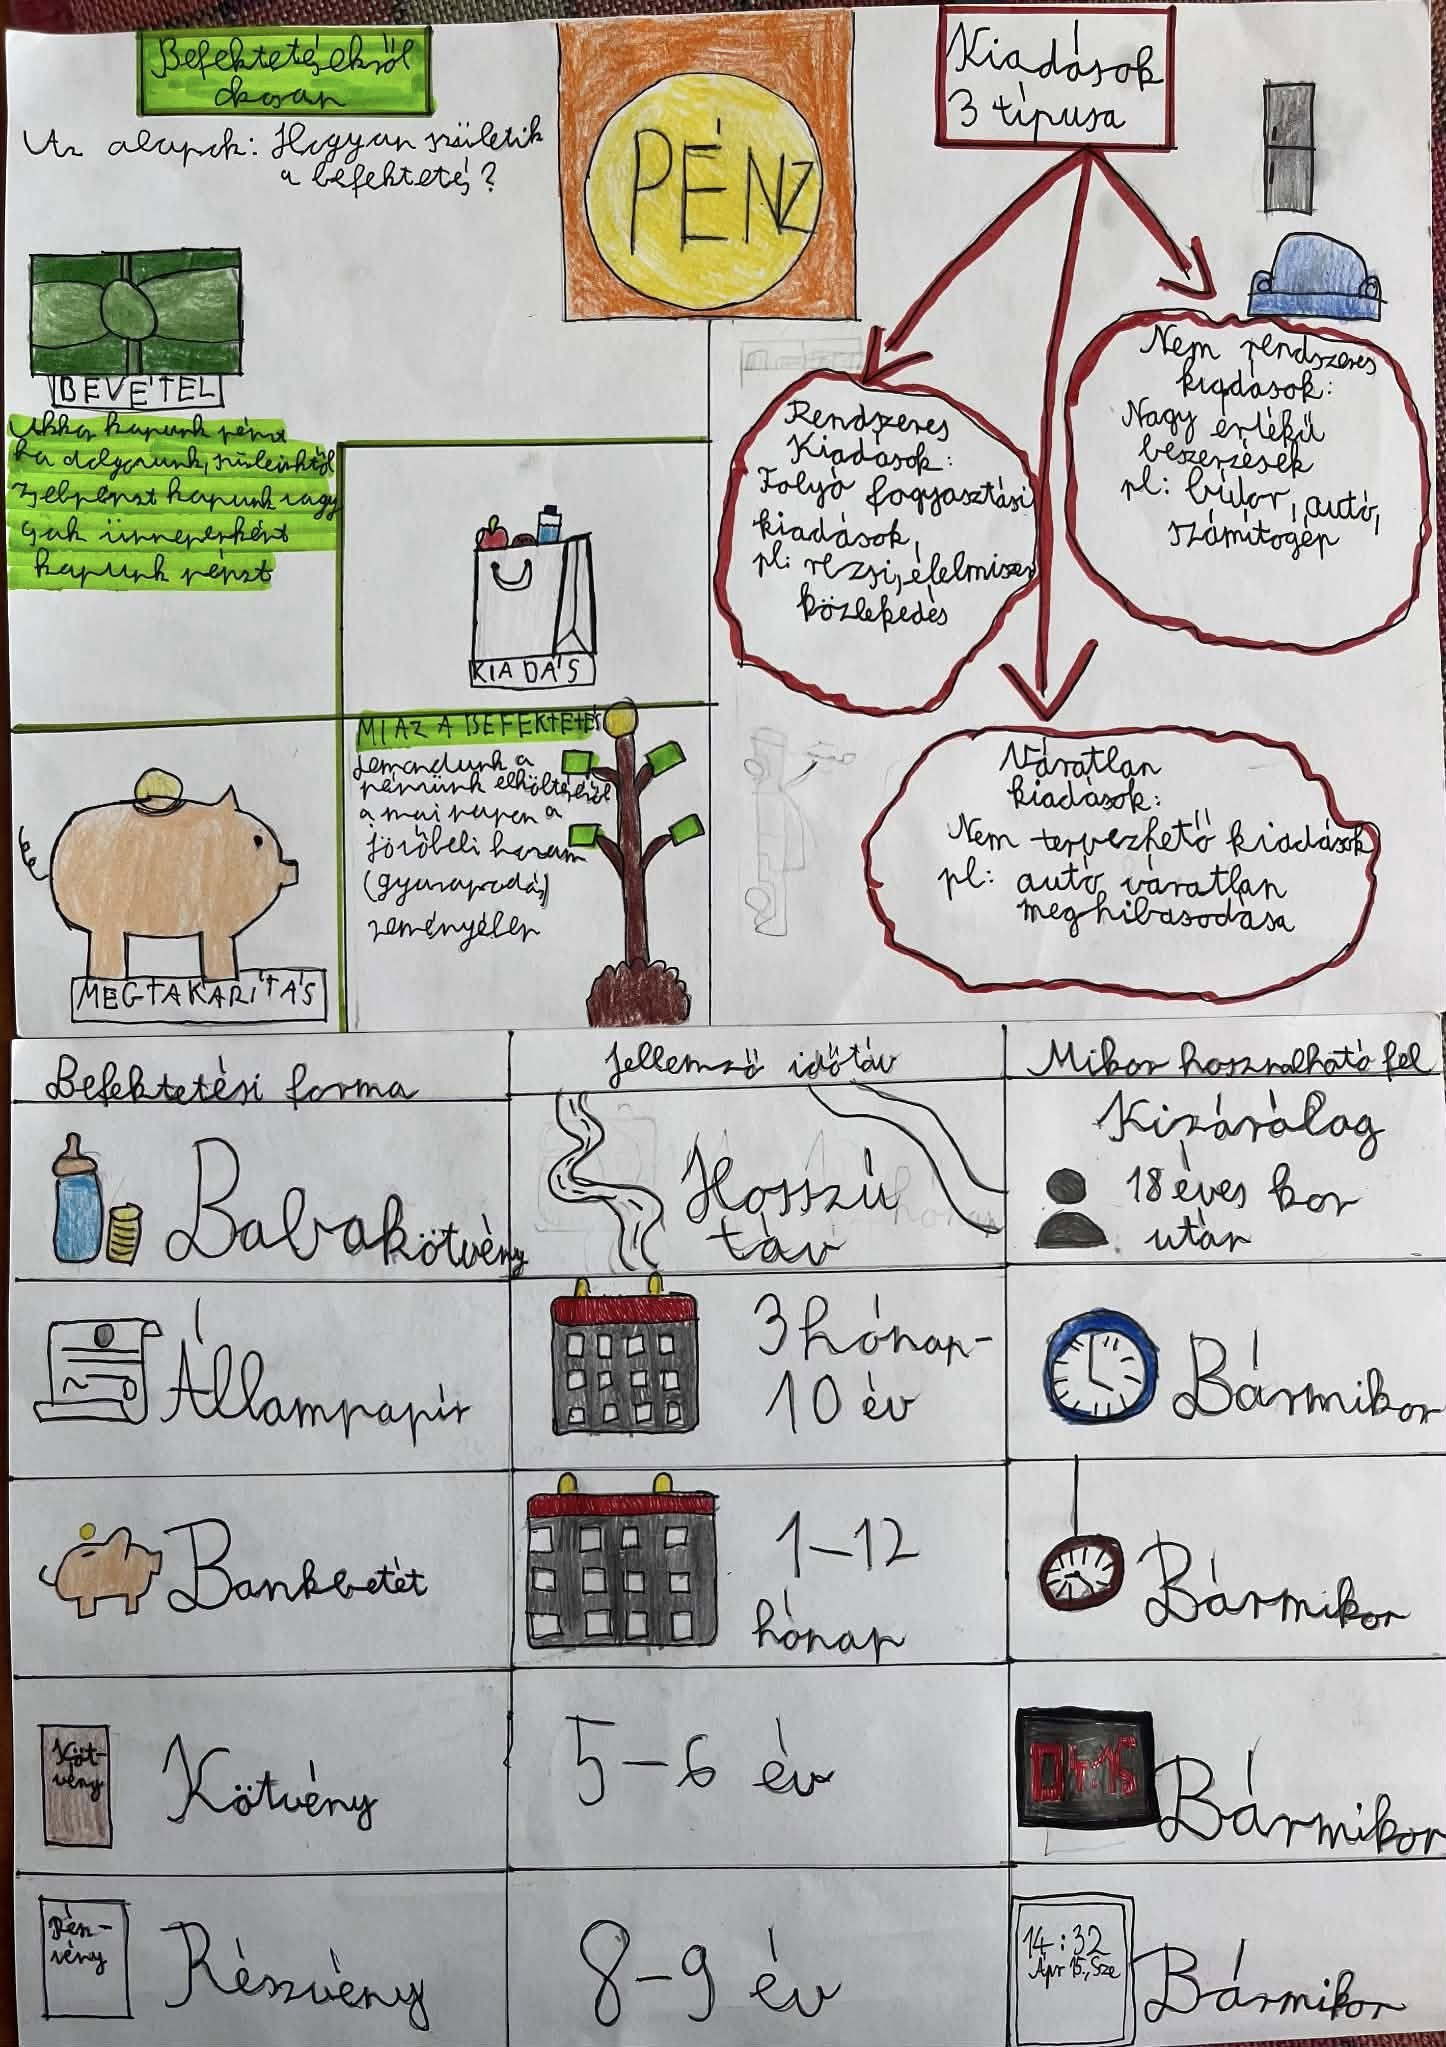 Befektetésekről
okosan
Az alapok: Hogyan születik
a befektetés?
PÉNZ
Kiadások
3 típusa
BEVÉTEL
Akkor kapunk pénzt
ha dolgozunk, szüleinktől
zsebpénzt kapunk vagy
csak ünnepenként
kapunk pénzt
KIADÁS
MEGTAKARÍTÁS
MI AZ A BEFEKTETÉS
Lemondunk a
pénzünk elköltéséről
a mai napon a
jövőbeli haszon
(gyarapodás)
reményében
Rendszeres
Kiadások:
Folyó fogyasztási
kiadások,
pl: rezsi, élelmiszer
közlekedés
Nem rendszeres
kiadások:
Nagy értékű
beszerzések
pl: bútor, autó,
számítógép
Váratlan
kiadások:
Nem tervezhető kiadások
pl: autó váratlan
meghibásodása
Befektetési forma
Jellemző időtáv
Mikor használható fel
Babakötvény
Hosszú
táv
Kizárólag
18 éves kor
után
Állampapír
3 hónap-
10 év
Bármikor
Bankbetét
1-12
hónap
Bármikor
Köt-
vény
Kötvény
5-6 év
04:15
Bármikor
Rész-
vény
Részvény
8-9 év
14:32
Ápr 15., Sze
Bármikor